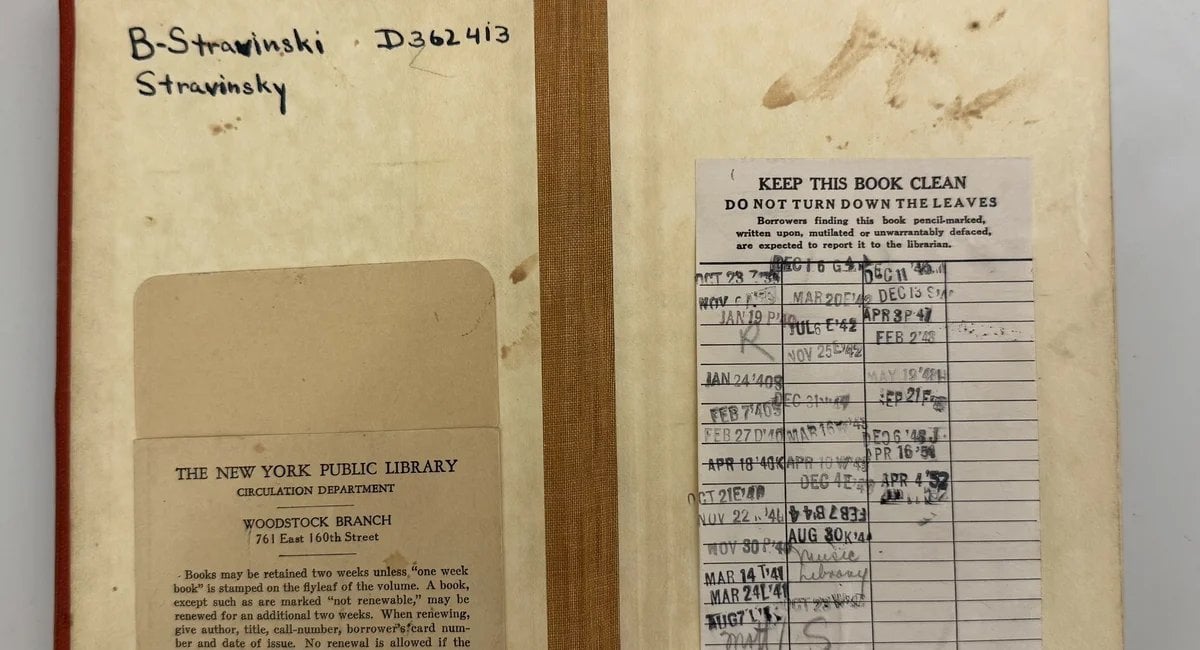 B-Stravinski D362413
Stravinsky
THE NEW YORK PUBLIC LIBRARY
CIRCULATION DEPARTMENT
WOODSTOCK BRANCH
761 East 160th Street
Books may be retained two weeks unless "one week
book" is stamped on the flyleaf of the volume. A book,
except such as are marked "not renewable," may be
renewed for an additional two weeks. When renewing,
give author, title, call-number, borrower's card num-
ber and date of issue. No renewal is allowed if the
KEEP THIS BOOK CLEAN
DO NOT TURN DOWN THE LEAVES
Borrowers finding this book pencil-marked,
written upon, mutilated or unwarrantably defaced,
are expected to report it to the librarian.
OCT 23
NOV
JAN 19 P'40
R
JAN 24 '40S
FEB 7 '40S
FEB 27 D'40
APR 18 '40K
OCT 21E'40
NOV 22
NOV 30 P'40
MAR 14 T'41
MAR 24L'41
AUG 7
DEC 16
MAR 20E'42
JUL 6 E'42
NOV 25E'42
DEC 31
MAR 16
APR 10
DEC 4E
FEB 7 B 44
AUG 30K'44
music
Library
OCT 23
S
DEC 11
DEC 13
APR 3P'47
FEB 2'48
MAY 19'48
SEP 21
DEC 6 '48J
APR 16'51
APR 4 '52